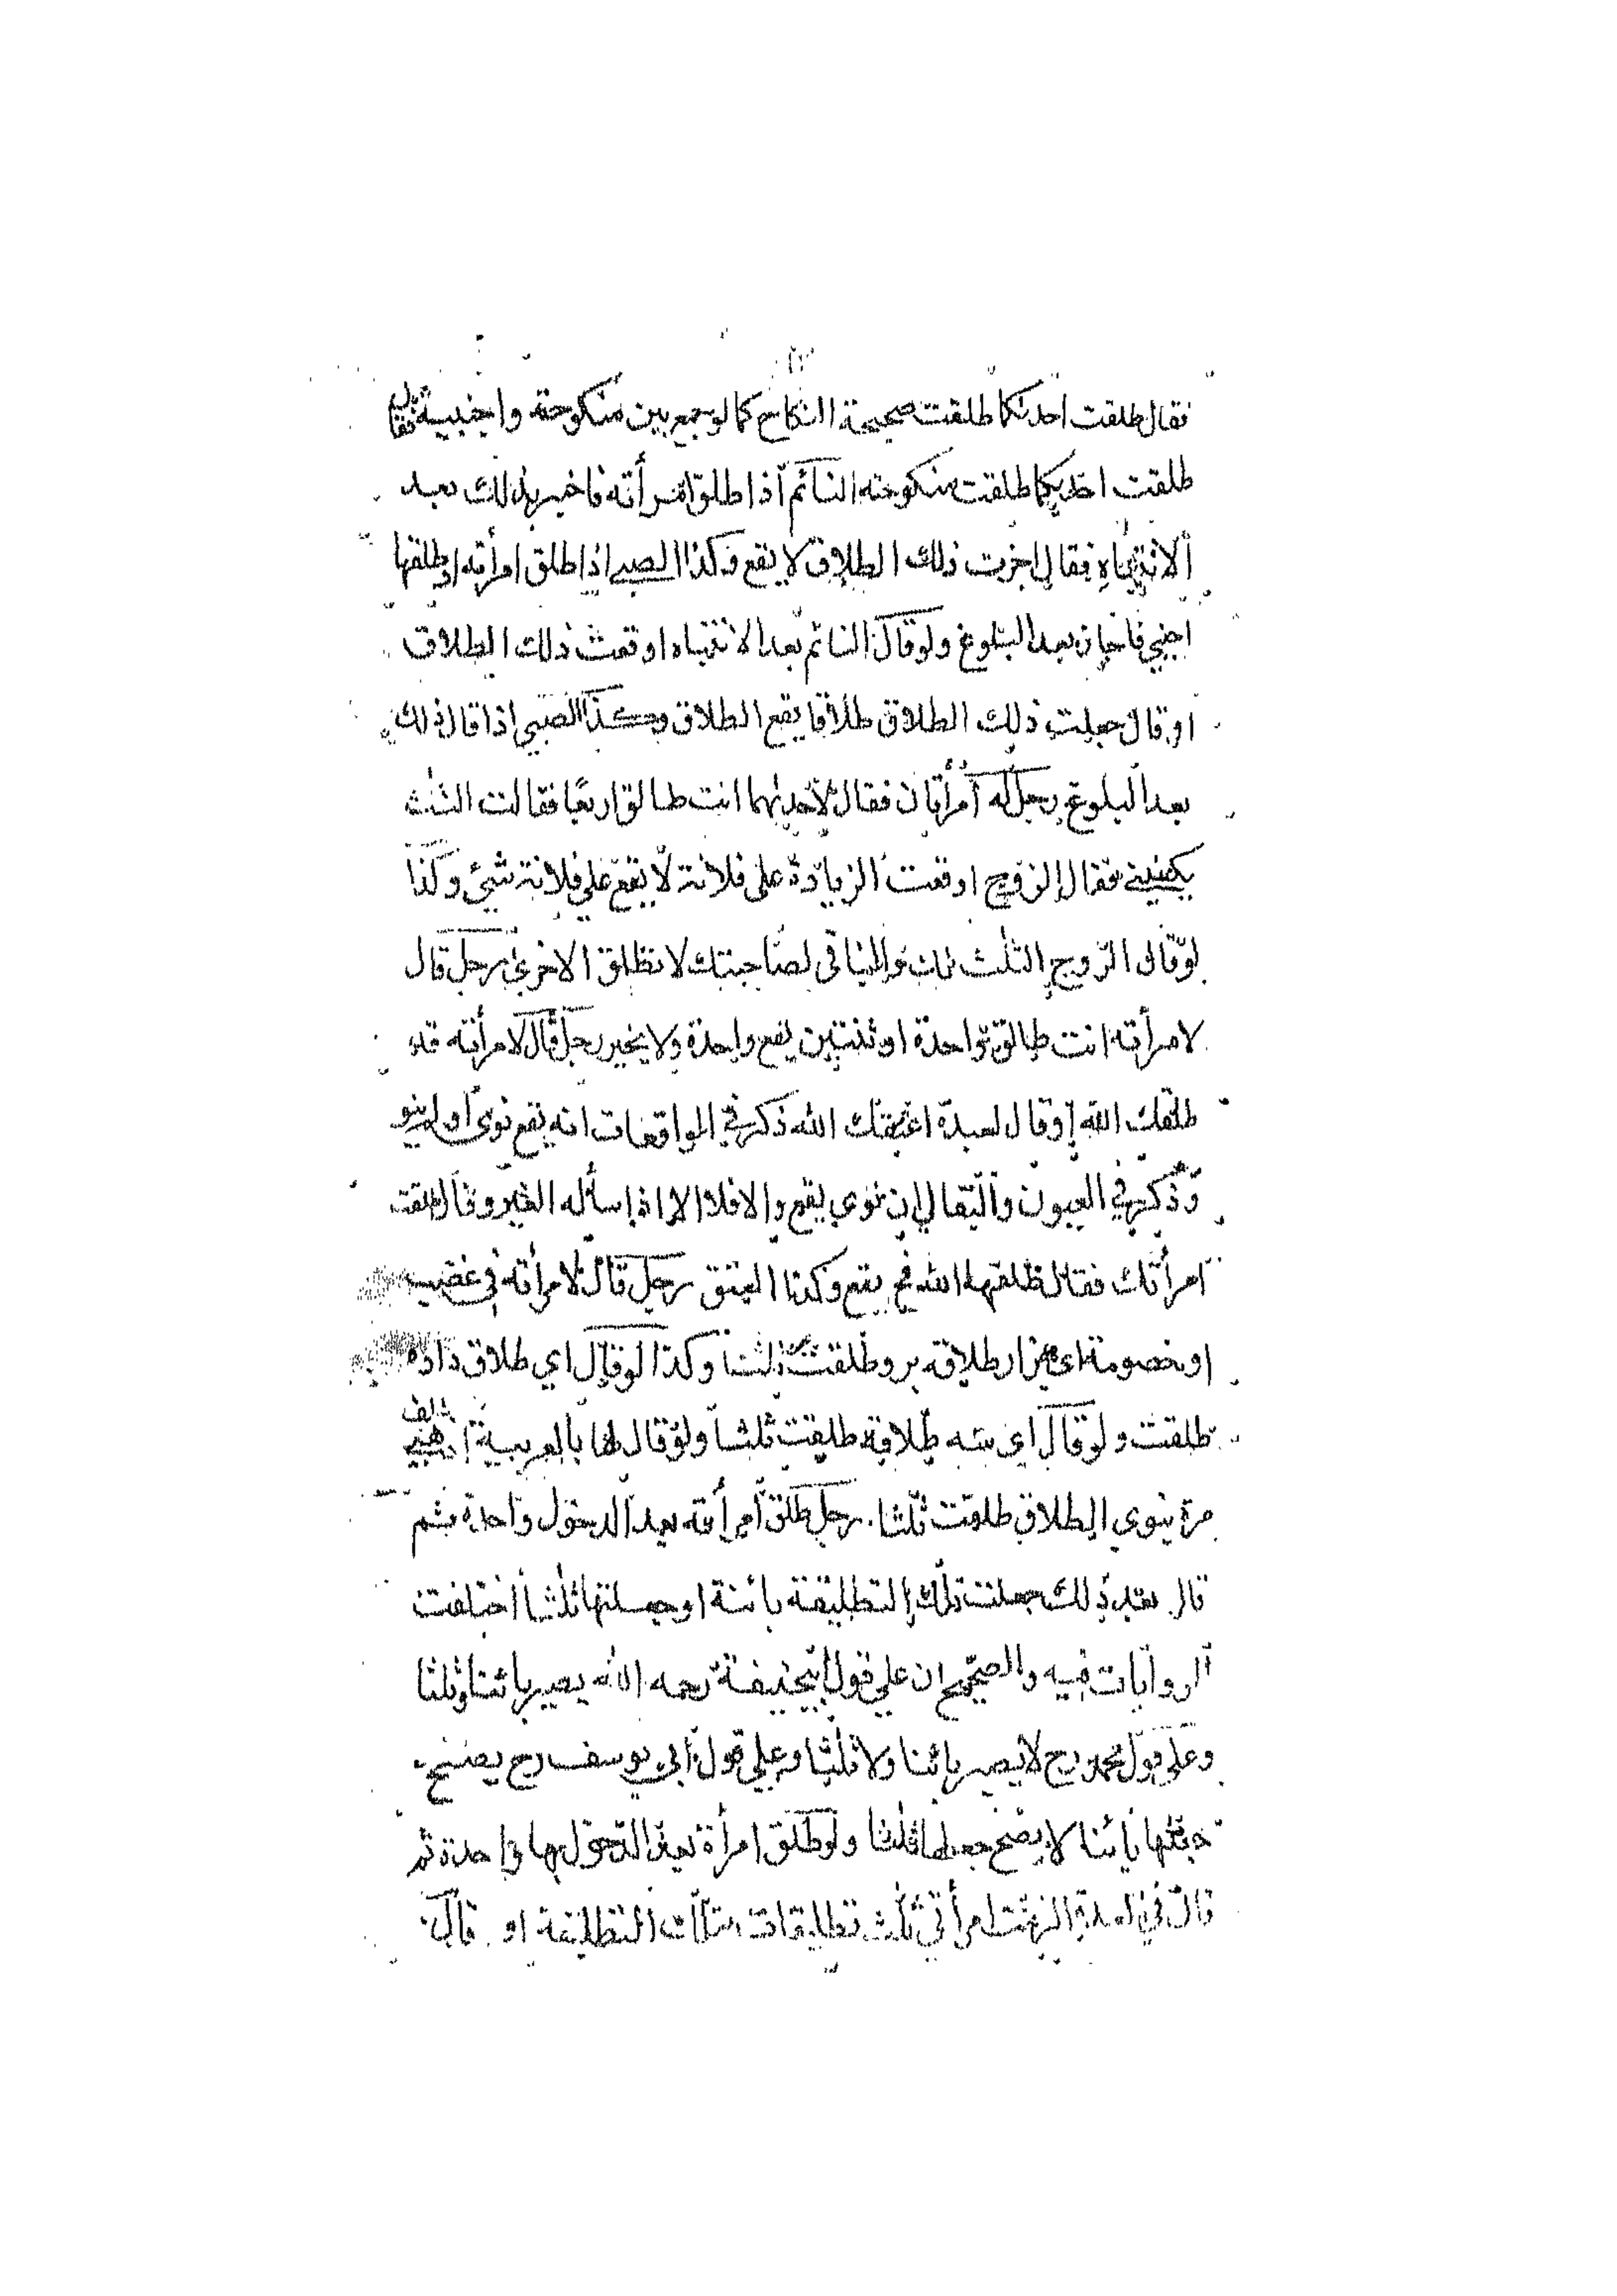 فقال طلقت احدىكما طلقت صحيحة النكاح كما لو جمع بين منكوحة واجنبية فقال
طلقت احديكما طلقت منكوحته النائم اذا طلق امرأته فاخبر بذلك بعد
الانتباه فقال اجزت ذلك الطلاق لا يقع وكذا الصبي اذا طلق امرأته او طلقها
اجنبي فاجازه بعد البلوغ ولو قال النائم بعد الانتباه اوقعت ذلك الطلاق
او قال جعلت ذلك الطلاق طلاقا يقع الطلاق وكذا الصبي اذا قال ذلك
بعد البلوغ رجل له امرأتان فقال لاحدٰيهما انت طالق اربعا فقالت الثلث
يكفيني فقال الزوج اوقعت الزيادة على فلانة لا يقع على فلانة شيئ وكذا
لو قال الزوج الثلث لك والباقي لصاحبتك لا تطلق الاخرى رجل قال
لامرأته انت طالق واحدة او ثنتين يقع واحدة ولا يخير رجل قال لامرأته قد
طلقك الله او قال لعبده اعتقك الله ذكر في الواقعات انه يقع نوى او لم ينو
وذكر في العيون والبقالي ان نوى يقع والا فلا الا اذا سأله الغير وقال طلقت
امرأتك فقال طلقها الله فح يقع وكذا العتق رجل قال لامرأته في غضب
او خصومة اى هزار طلاقه برو طلقت ثلثا وكذا لو قال اي طلاق داده
طلقت ولو قال اى سه طلاقة طلقت ثلثا ولو قال لها بالعربية الف
مرة ينوي الطلاق طلقت ثلثا. رجل طلق امرأته بعد الدخول واحدة ثم
قال بعد ذلك جعلت تلك التطليقة بائنة او جعلتها ثلثا اختلفت
الروايات فيه والصحيح ان على قول ابيحنيفة رحمه الله يصير بائنا وثلثا
وعلى قول محمد رح لا يصير بائنا ولا ثلثا وعلى قول ابي يوسف رح يصح
جعلها بائنا لا يصح جعلها ثلثا ولو طلق امرأة بعد الدخول بها واحدة ثم
قال في العدة الزمت امرأتي ثلث تطليقات بتلك التطليقة او قال